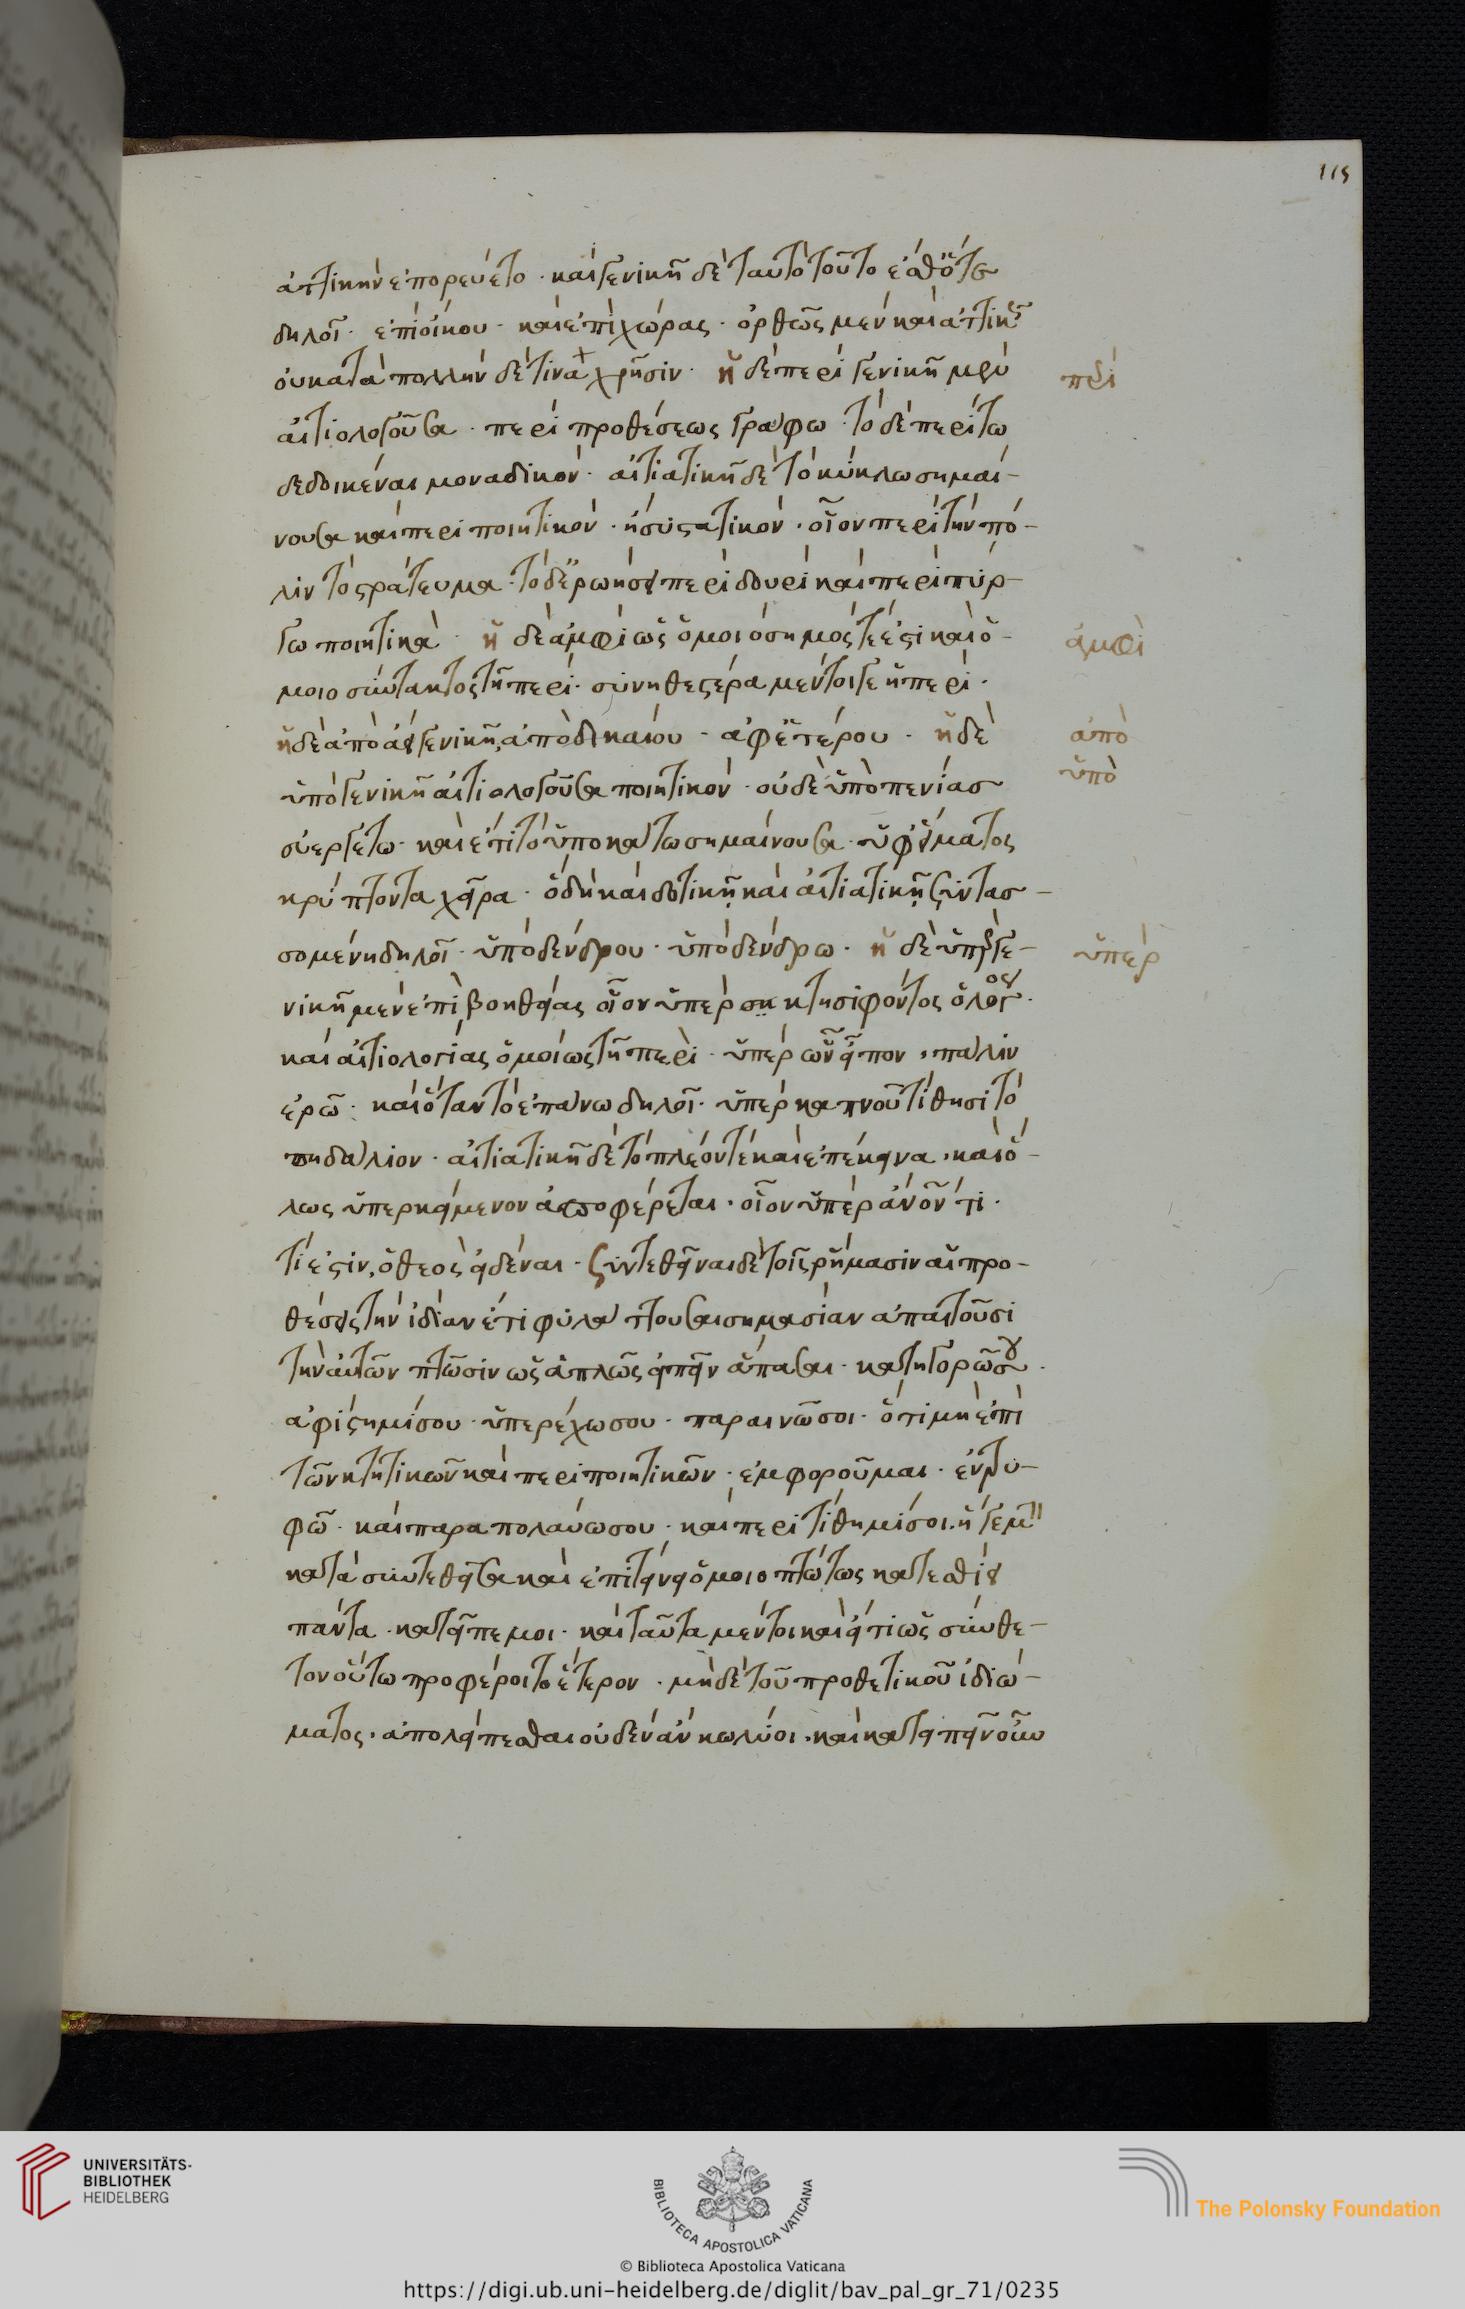 115
ἀττικὴν ἐπορεύετο· καὶ γενικῆ δὲ ταυτὸ τοῦτο ἔσθ' ὅτε
δηλοῖ· ἐπὶ οἴκου· καὶ ἐπὶ χώρας· ὀρθῶς μὲν καὶ ἀττικῶς
οὐ κατὰ πολλὴν δέ τινα χρῆσιν· ἡ δὲ περὶ γενικῆ μὲν
περὶ
αἰτιολογοῦσα· περὶ προθέσεως γράφω· τὸ δὲ περὶ τω
δεδοικέναι μοναδικόν· αἰτιατικῆ δὲ τὸ κύκλω σημαί-
νουσα καὶ περιποιητικόν· ἢ συστατικόν· οἷον περὶ τὴν πό-
λιν τὸ στράτευμα· τὸ δὲ περὶ δουρὶ καὶ περὶ πύρ-
γω ποιητικά· ἡ δὲ ἀμφὶ ὡς ὁμοιόσημός τέ ἐστι καὶ ὁ-
ἀμφὶ
μοιοσύντακτος τῆ περί· συνηθεστέρα μέντοι γε ἡ περί·
ἡ δὲ ἀπὸ ἀεὶ γενικῆ, ἀπὸ δικαίου· ἀφ' ἑτέρου· ἡ δὲ
ἀπὸ
ὑπὸ γενικῆ αἰτιολογοῦσα ποιητικόν· οὐδὲ ὑπὸ πενίας
ὑπὸ
συεργέτω· καὶ ἔτι τὸ ὑποκάτω σημαίνουσα· ὑφ' εἵματος
κρύπτοντα χεῖρα· ὃ δὴ καὶ δοτικῆ καὶ αἰτιατικῆ συντασ-
σομένη δηλοῖ· ὑπὸ δένδρου· ὑπὸ δένδρω· ἡ δὲ ὑπὲρ γε-
ὑπὲρ
νικῆ μὲν ἐπὶ βοηθείας οἷον ὑπὲρ κτησιφόντος ὁ λόγος·
καὶ αἰτιολογίας ὁμοίως τῆ περί· ὑπὲρ ὧν εἶπον, πάλιν
ἐρῶ· καὶ ὅταν τὸ ἐπάνω δηλοῖ· ὑπὲρ καπνοῦ τίθησι τὸ
πηδάλιον· αἰτιατικῆ δὲ τὸ πλέον τὲ καὶ ἐπέκεινα, καὶ ὅ-
λως ὑπερκείμενον ἀποφέρεται· οἷον ὑπὲρ ἄνον τί·
τί ἐστιν, ὁ θεὸς εἰδέναι· Συντεθεῖναι δὲ τοῖς ῥήμασιν αἱ προ-
θέσεις τὴν ἰδίαν ἔτι φυλάττουσαι σημασίαν ἀπαιτοῦσι
τὴν αὐτῶν πτῶσιν ὡς ἁπλῶς εἰπεῖν ἅπασαι· κατηγορῶ σου·
ἀφίστημί σου· ὑπερέχω σου· παραινῶ σοι· ὅτι μὴ ἐπὶ
τῶν κτητικῶν καὶ περιποιητικῶν· ἐμφοροῦμαι· ἐντρυ-
φῶ· καὶ παραπολαύω σου· καὶ περιτίθημί σοι· ἥ γε μὴν
κατὰ συντεθεῖσα καὶ ἐπιτείνει ὁμοιοπτώτως κατεσθίει
πάντα· κατεῖπέ μοι· καὶ ταῦτα μέντοι καὶ εἴ τι ὡς σύνθε-
τον οὕτω προφέροιτο ἕτερον· μηδὲ τοῦ προθετικοῦ ἰδιώ-
ματος, ἀπολείπεσθαι οὐδὲν ἂν κωλύοι, καὶ κατειπεῖν οἴκω
UNIVERSITÄTS-
BIBLIOTHEK
HEIDELBERG
BIBLIOTECA APOSTOLICA VATICANA
The Polonsky Foundation
© Biblioteca Apostolica Vaticana
https://digi.ub.uni-heidelberg.de/diglit/bav_pal_gr_71/0235